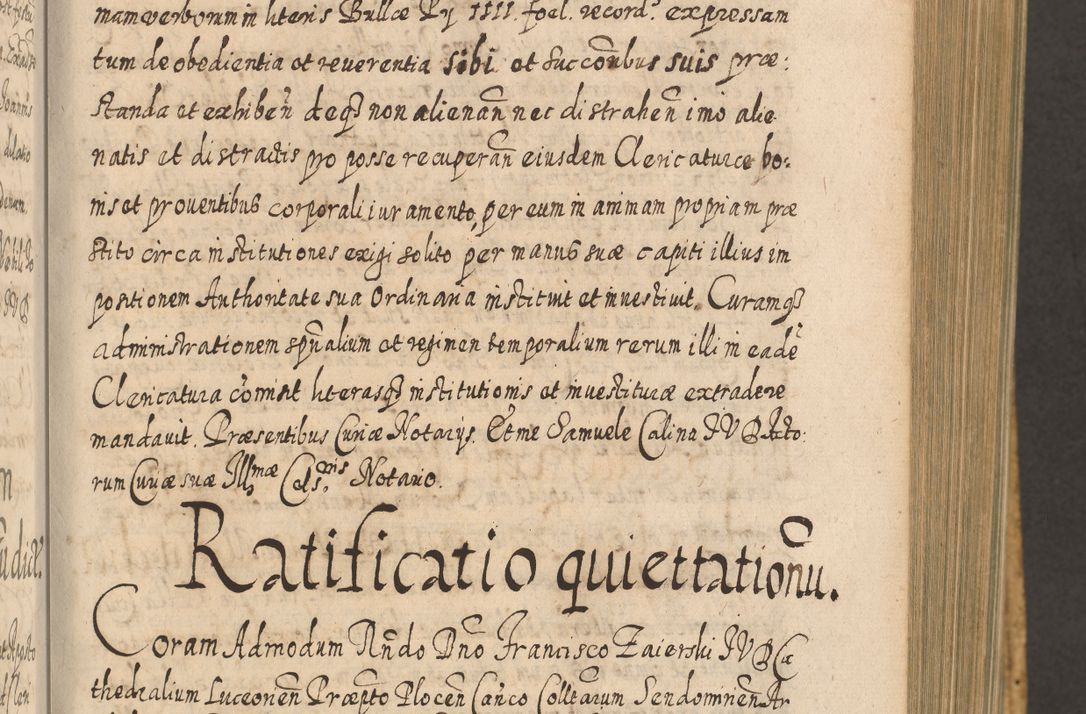 mam verborum in literis Bullæ Py IIII. foel. record? expressam
tum de obedientia et reuerentia sibi et succoribus suis præ:
standa et exhiben deq non alienan nec distrahen imo alie
natis et distractis pro posse recuperan eiusdem Clericaturæ bo:
nis et prouentibus corporali iuramento, per eum in animam propriam præ
stito circa institutiones exigi solito per manus suæ capiti illius im
positionem Authoritate sua Ordinaria instituit et inuestiuit. Curamq
administrationem spnalium et regimen temporalium rerum illi in eade
Clericatura comisit literasq institutionis et inuestituræ extradere
mandauit. Præsentibus Curiæ Notarys. Et me Samuele Calina JVD Acto:
rum Curiæ suæ Illmæ Celsnis Notario.
Ratificatio quiettationu.
Coram Admodum Rndo Dno Francisco Zaierski JVD Ca
thedralium Luceorien Præpto Plocen Canco Colltarum Sendomirien Ar